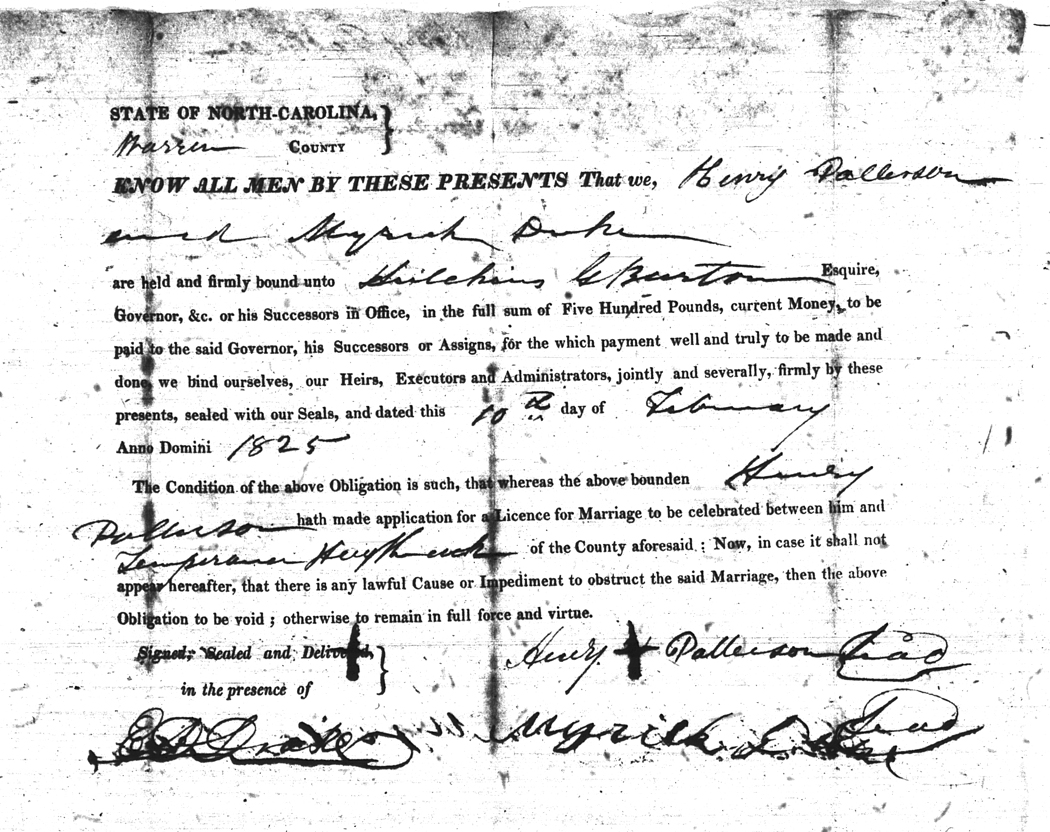 STATE OF NORTH-CAROLINA,
Warren COUNTY
KNOW ALL MEN BY THESE PRESENTS That we, Henry Patterson
and Myrick Duke
are held and firmly bound unto Hutchins G Burton Esquire,
Governor, &c. or his Successors in Office, in the full sum of Five Hundred Pounds, current Money, to be
paid to the said Governor, his Successors or Assigns, for the which payment well and truly to be made and
done, we bind ourselves, our Heirs, Executors and Administrators, jointly and severally, firmly by these
presents, sealed with our Seals, and dated this 10th day of February
Anno Domini 1825
The Condition of the above Obligation is such, that whereas the above bounden Henry
Patterson hath made application for a Licence for Marriage to be celebrated between him and
Temperance of the County aforesaid : Now, in case it shall not
appear hereafter, that there is any lawful Cause or Impediment to obstruct the said Marriage, then the above
Obligation to be void ; otherwise to remain in full force and virtue.
Signed, Sealed and Delivered, Henry + Patterson Seal
in the presence of
Drake Myrick Duke Seal